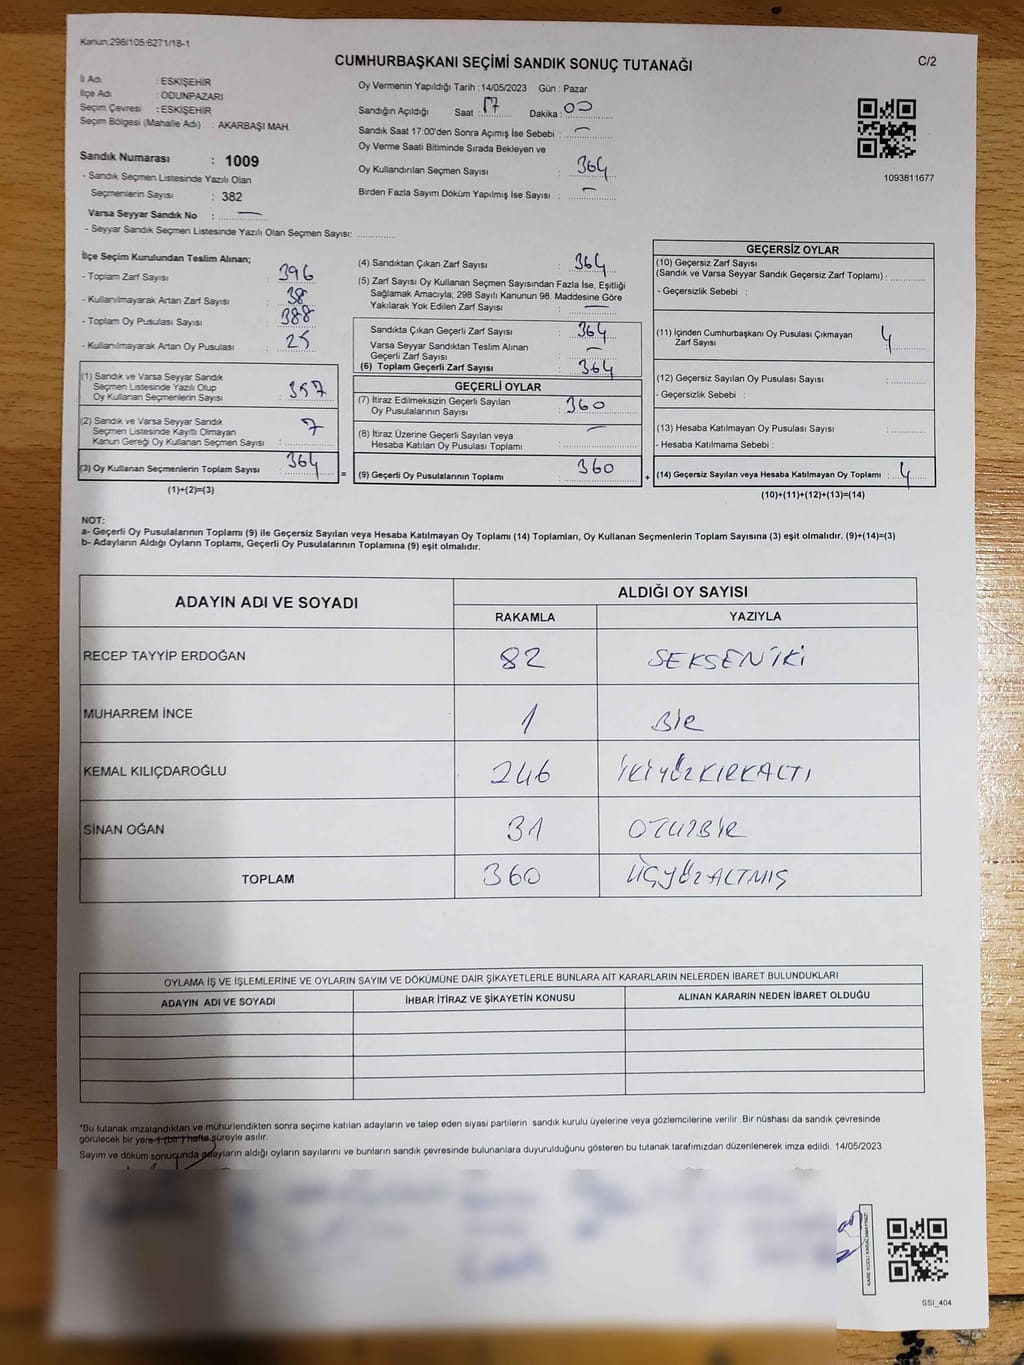 Kanun:298/105;6271/18-1
CUMHURBAŞKANI SEÇİMİ SANDIK SONUÇ TUTANAĞI
C/2
İl Adı : ESKİŞEHİR
İlçe Adı : ODUNPAZARI
Seçim Çevresi : ESKİŞEHİR
Seçim Bölgesi (Mahalle Adı) : AKARBAŞI MAH.
Sandık Numarası : 1009
- Sandık Seçmen Listesinde Yazılı Olan
Seçmenlerin Sayısı : 382
Varsa Seyyar Sandık No : —
- Seyyar Sandık Seçmen Listesinde Yazılı Olan Seçmen Sayısı:
Oy Vermenin Yapıldığı Tarih :14/05/2023 Gün : Pazar
Sandığın Açıldığı Saat : 17 Dakika : 00
Sandık Saat 17:00'den Sonra Açımış İse Sebebi : —
Oy Verme Saati Bitiminde Sırada Bekleyen ve
Oy Kullandırılan Seçmen Sayısı : 364
Birden Fazla Sayım Döküm Yapılmış İse Sayısı : —
1093811677
İlçe Seçim Kurulundan Teslim Alınan;
- Toplam Zarf Sayısı : 396
- Kullanılmayarak Artan Zarf Sayısı : 38
- Toplam Oy Pusulası Sayısı : 388
- Kullanılmayarak Artan Oy Pusulası : 25
(1) Sandık ve Varsa Seyyar Sandık
Seçmen Listesinde Yazılı Olup
Oy Kullanan Seçmenlerin Sayısı : 357
(2) Sandık ve Varsa Seyyar Sandık
Seçmen Listesinde Kayıtlı Olmayan
Kanun Gereği Oy Kullanan Seçmen Sayısı : 7
(3) Oy Kullanan Seçmenlerin Toplam Sayısı : 364
(1)+(2)=(3)
(4) Sandıktan Çıkan Zarf Sayısı : 364
(5) Zarf Sayısı Oy Kullanan Seçmen Sayısından Fazla İse, Eşitliği
Sağlamak Amacıyla; 298 Sayılı Kanunun 98. Maddesine Göre
Yakılarak Yok Edilen Zarf Sayısı : —
Sandıkta Çıkan Geçerli Zarf Sayısı : 364
Varsa Seyyar Sandıktan Teslim Alınan
Geçerli Zarf Sayısı : —
(6) Toplam Geçerli Zarf Sayısı : 364
GEÇERLİ OYLAR
(7) İtiraz Edilmeksizin Geçerli Sayılan
Oy Pusulalarının Sayısı : 360
(8) İtiraz Üzerine Geçerli Sayılan veya
Hesaba Katılan Oy Pusulası Toplamı : —
= (9) Geçerli Oy Pusulalarının Toplamı : 360
GEÇERSİZ OYLAR
(10) Geçersiz Zarf Sayısı
(Sandık ve Varsa Seyyar Sandık Geçersiz Zarf Toplamı) :
- Geçersizlik Sebebi :
(11) İçinden Cumhurbaşkanı Oy Pusulası Çıkmayan
Zarf Sayısı : 4
(12) Geçersiz Sayılan Oy Pusulası Sayısı :
- Geçersizlik Sebebi :
(13) Hesaba Katılmayan Oy Pusulası Sayısı :
- Hesaba Katılmama Sebebi :
+ (14) Geçersiz Sayılan veya Hesaba Katılmayan Oy Toplamı : 4
(10)+(11)+(12)+(13)=(14)
NOT:
a- Geçerli Oy Pusulalarının Toplamı (9) ile Geçersiz Sayılan veya Hesaba Katılmayan Oy Toplamı (14) Toplamları, Oy Kullanan Seçmenlerin Toplam Sayısına (3) eşit olmalıdır. (9)+(14)=(3)
b- Adayların Aldığı Oyların Toplamı, Geçerli Oy Pusulalarının Toplamına (9) eşit olmalıdır.
ADAYIN ADI VE SOYADI
ALDIĞI OY SAYISI
RAKAMLA YAZIYLA
RECEP TAYYİP ERDOĞAN 82 SEKSENİKİ
MUHARREM İNCE 1 BİR
KEMAL KILIÇDAROĞLU 246 İKİYÜZKIRKALTI
SİNAN OĞAN 31 OTUZBİR
TOPLAM 360 ÜÇYÜZALTMIŞ
OYLAMA İŞ VE İŞLEMLERİNE VE OYLARIN SAYIM VE DÖKÜMÜNE DAİR ŞİKAYETLERLE BUNLARA AİT KARARLARIN NELERDEN İBARET BULUNDUKLARI
ADAYIN ADI VE SOYADI İHBAR İTİRAZ VE ŞİKAYETİN KONUSU ALINAN KARARIN NEDEN İBARET OLDUĞU
*Bu tutanak imzalandıktan ve mühürlendikten sonra seçime katılan adayların ve talep eden siyasi partilerin sandık kurulu üyelerine veya gözlemcilerine verilir .Bir nüshası da sandık çevresinde
görülecek bir yere 1 (bir) hafta süreyle asılır.
Sayım ve döküm sonucunda adayların aldığı oyların sayılarını ve bunların sandık çevresinde bulunanlara duyurulduğunu gösteren bu tutanak tarafımızdan düzenlenerek imza edildi. 14/05/2023
SSI_404